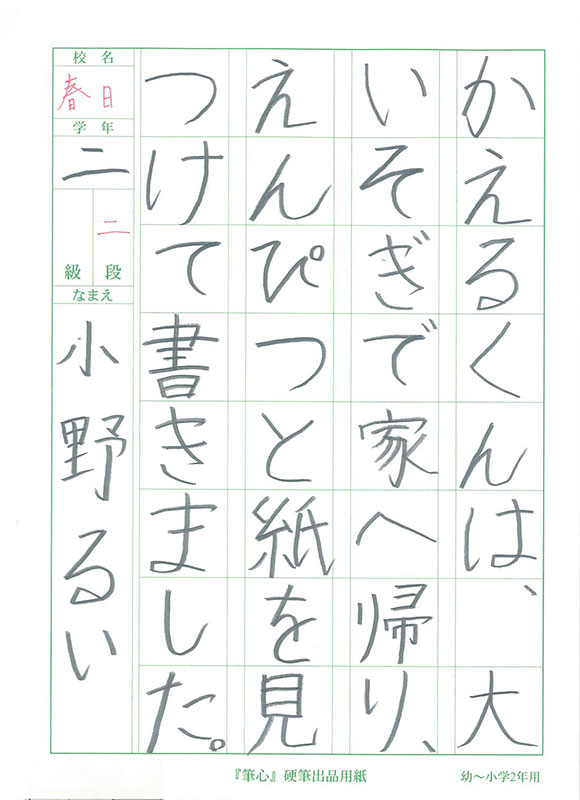 かえるくんは、大
いそぎで家へ帰り、
えんぴつと紙を見
つけて書きました。
校名
春日
学年
二
二
級段
なまえ
小野るい
『筆心』硬筆出品用紙
幼〜小学2年用